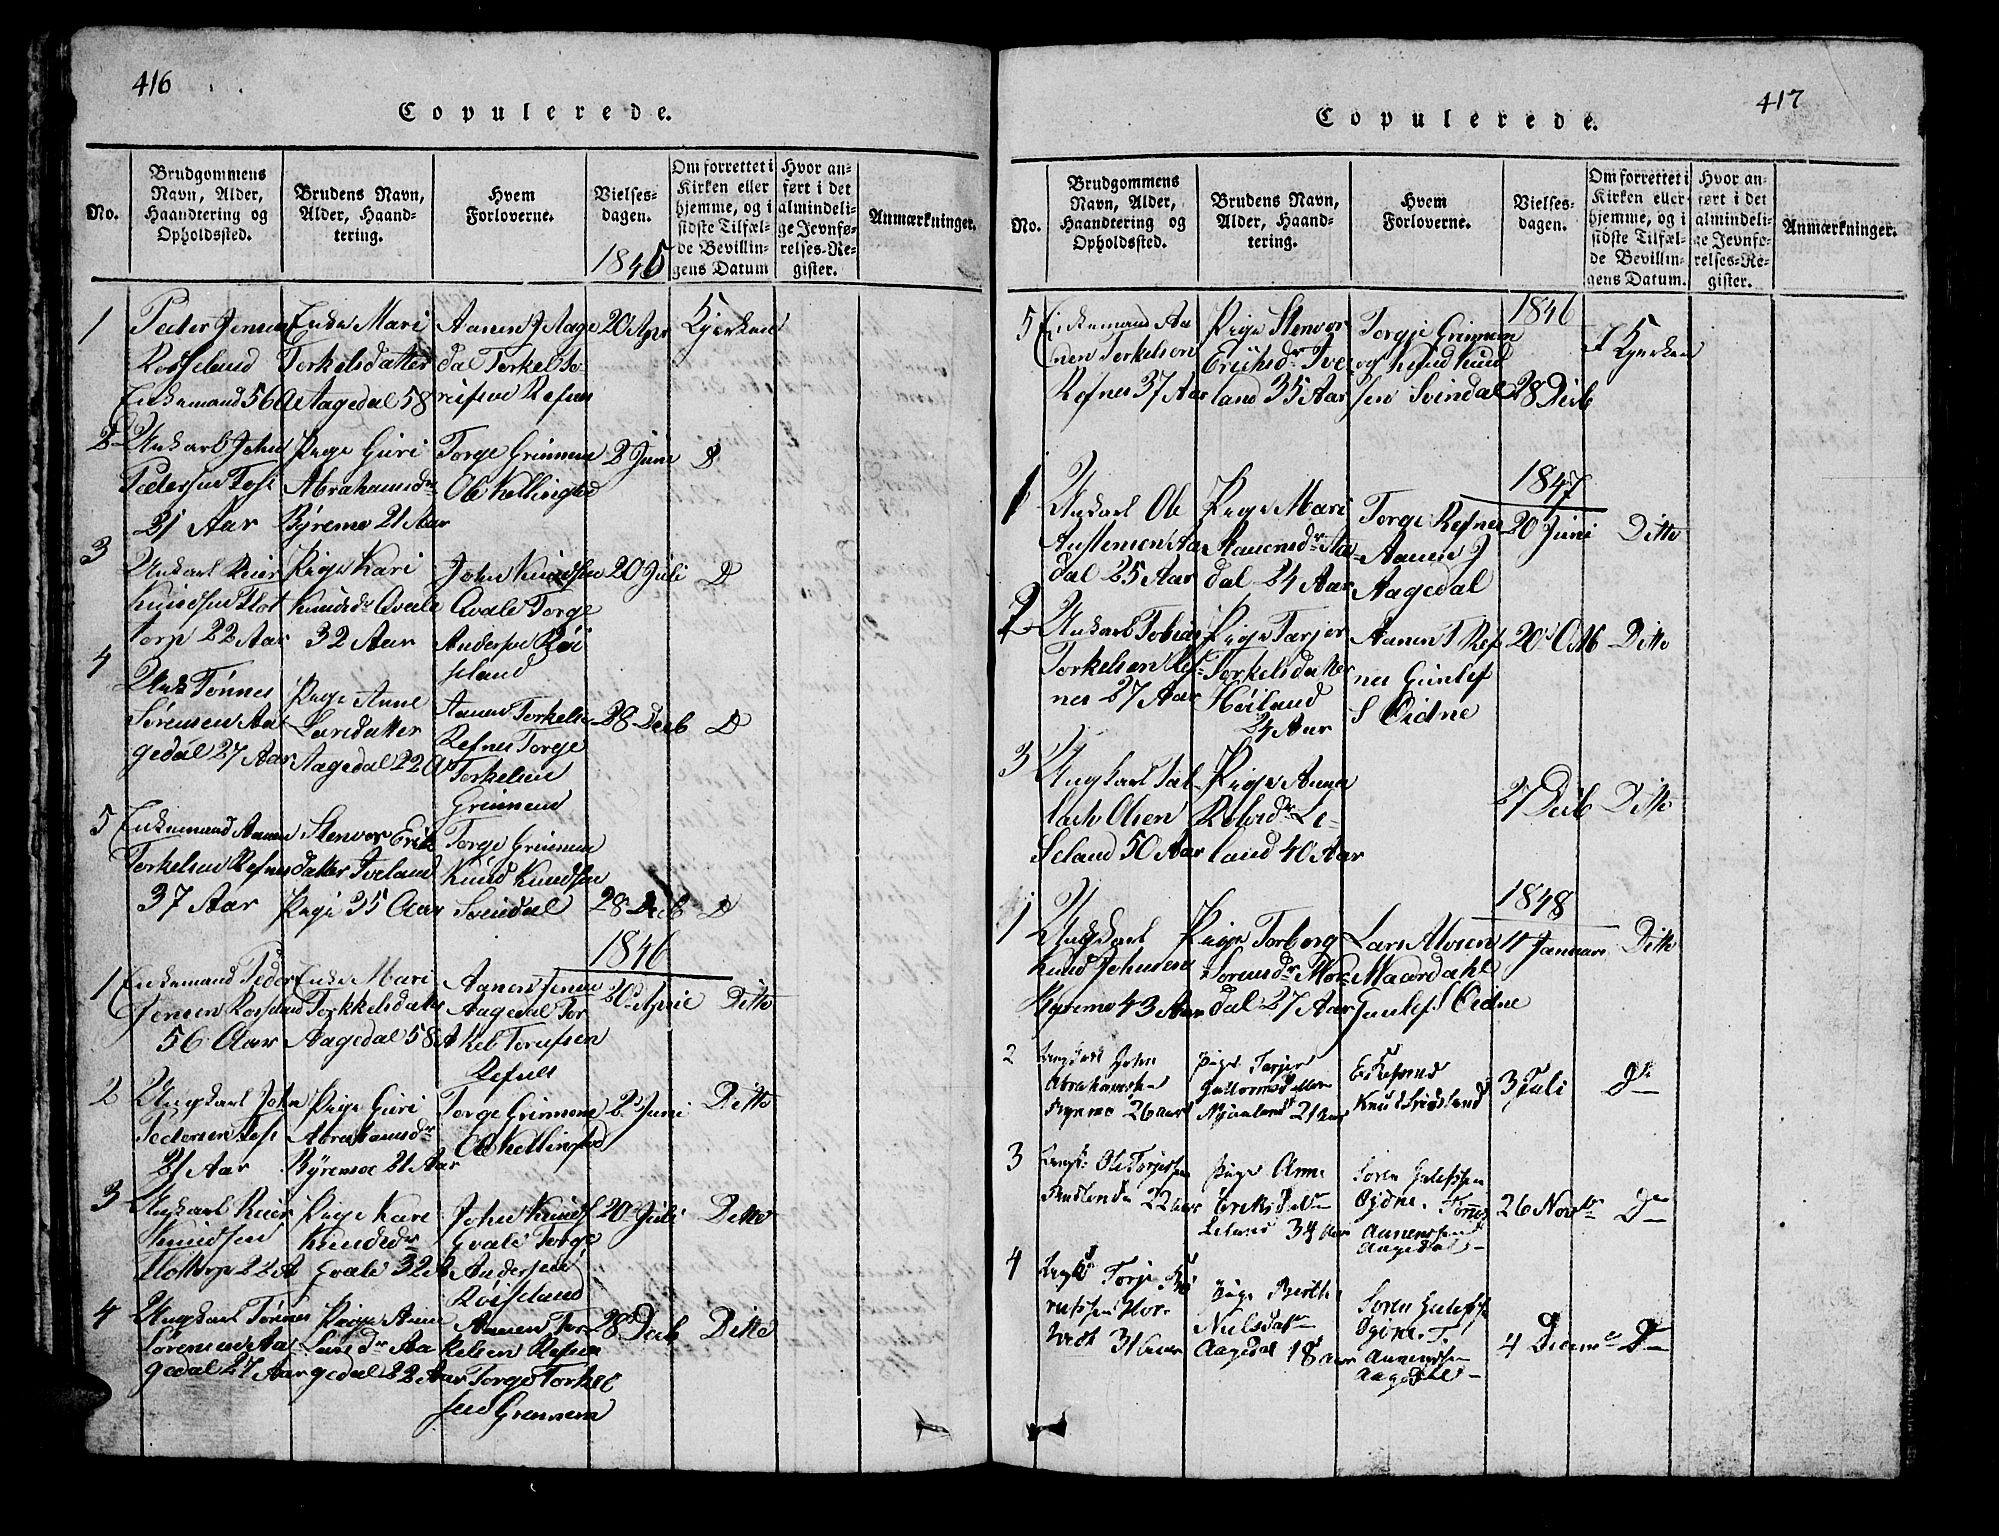 416
Copulerede.
No.
Brudgommens
Navn, Alder,
Haandtering og
Opholdssted.
Brudens Navn,
Alder, Haand-
tering.
Hvem
Forloverne.
Vielses-
dagen.
1845
Om forrettet i
Kirken eller
hjemme, og i
sidste Tilfæl-
de Bevillin-
gens Datum
Hvor an-
ført i det
almindeli-
ge Jevnfø-
relses-Re-
gister.
Anmærkninger.
1
Peder Jensen
Rosseland
Enkemand 56 A
Enke Mari
Torkelsdatter
Aagedal 58
Aanen J Aage
dal Torkel To
Refnes
20 Apr
Kjerken
2
Unkarl John
Pedersen
21 Aar
Pige Guri
Abrahamsdr
Byremo 21 Aar
Torge Grimmen
Ole Kellingstad
2 Juni
D
3
Unkarl Reier
Knudsen Flot
torp 22 Aar
Pige Kari
Knudsdr Qvale
32 Aar
John Knudsen
Qvale Torge
Andersen Röi
seland
20 Juli
D
4
Unk Tönnes
Sørensen Aa
gedal 27 Aar
Pige Anne
Larsdatter
Aagedal 22 A
Aanen Torkelse
Refnes Torge
Torkelsen
Grimmen
28 Decb
D
5
Enkemand Aanen
Torkelsen Refnes
37 Aar
Stenvor Erik
datter Iveland
Pige 35 Aar
Torge Grimmen
Knud Knudsen
Svindal
28 Decb
D
1846
1
Enkemand Peder
Jensen Rosseland
56 Aar
Enke Mari
Torkkelsdatter
Aagedal 58 A
Aanen Jensen
Aagedal Tor
kel Torufsen
Refnes
20 Aprie
Ditto
2
Ungkarl John
Pedersen
21 Aar
Pige Guri
Abrahamsdr
Byremoe 21 Aar
Torge Grimmen
Ole Kellingstad
2 Juni
Ditto
3
Unkarl Reier
Knudsen
Flottorp 22 A
Pige Kari
Knudsdr
Qvale 32 A
John Knuds
Qvale Torge
Andersen
Röisseland
20 Juli
Ditto
4
Ungkarl Tönnes
Sörensen Aa
gedal 27 Aar
Pige Anne
Larsdr Aa
gedal 22 Aar
Aanen Tor
kelsen Refnes
Torge Torkel
sen Gremmem
28 Decb
Ditto
417
Copulerede.
No.
Brudgommens
Navn, Alder,
Haandtering og
Opholdssted.
Brudens Navn,
Alder, Haand-
tering.
Hvem
Forloverne.
Vielses-
dagen.
Om forrettet i
Kirken eller
hjemme, og i
sidste Tilfæl-
de Bevillin-
gens Datum.
Hvor an-
ført i det
almindeli-
ge Jevnfø-
relses-Re-
gister.
Anmærkninger.
1846
5
Enkemand Aa
nen Torkelsen
Refnes 37 Aar
Pige Stenvor
Erichsdr Ive
land 35 Aar
Torgie Grimmen
og Knud Knud
sen Svindal
28 Decb
Kjerken
1847
1
Unkarl Ole
Austensen Aa
dal 25 Aar
Pige Mari
Aanensdr Aa
dal 24 Aar
Torge Refnes
Aanen J
Aagedal
20 Juni
Ditto
2
Unkarl Tobias
Torkelsen Ref
nes 27 Aar
Pige Tarjer
Torkelsdatter
Höiland
24 Aar
Aanen T Ref
nes Gunlef
S Oidne
20 Octb
Ditto
3
Ungkarl Sal
Olsen
Seland 50 Aar
Pige Anna
Rolvsdr Le-
land 40 Aar
27 Decb
Ditto
1848
1
Ungkarl
Knud Johnsen
Byremo 43 Aar
Pige Torborg
Sorensdr Moe
dal 27 Aar
Lars Alvsen
Maardahl
Gunlef S Oidne
4 Januari
Ditto
2
Ungkarl John
Abrahamsen
Byremo 26 aar
Pige Tarjer
Guttormsdatter
21 Aar
Knud
3 Juli
Do
3
Ungk: Ole Torjussen
22 aar
Pige Anne
Eriksdatr
34 Aar
Soren Gulefssen
Øydne.
Aanenssen
Aagedal
26 Novbr
Do
4
Ungk Torje
31 aar
Pige Berthe
Nielsdatr
Aagedal 18 aar
Soren Gulefss
Øydne T.
Aanenssen
Aagedal
4 Decemr
Do